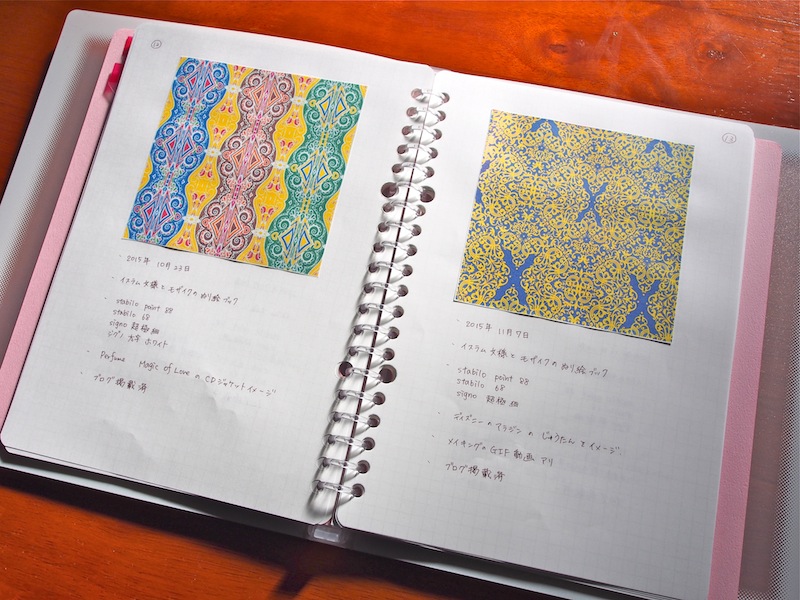 12
・2015年 10月23日
・イスラム文様とモザイクのぬり絵ブック
・stabilo point 88
stabilo 68
signo 超極細
シグノ 太字 ホワイト
・Perfume Magic of Love の CDジャケットイメージ
・ブログ掲載済
13
・2015年 11月7日
・イスラム文様とモザイクのぬり絵ブック
・stabilo point 88
stabilo 68
signo 超極細
・ディズニーのアラジンの じゅうたんをイメージ.
・メイキングのGIF動画アリ
・ブログ掲載済